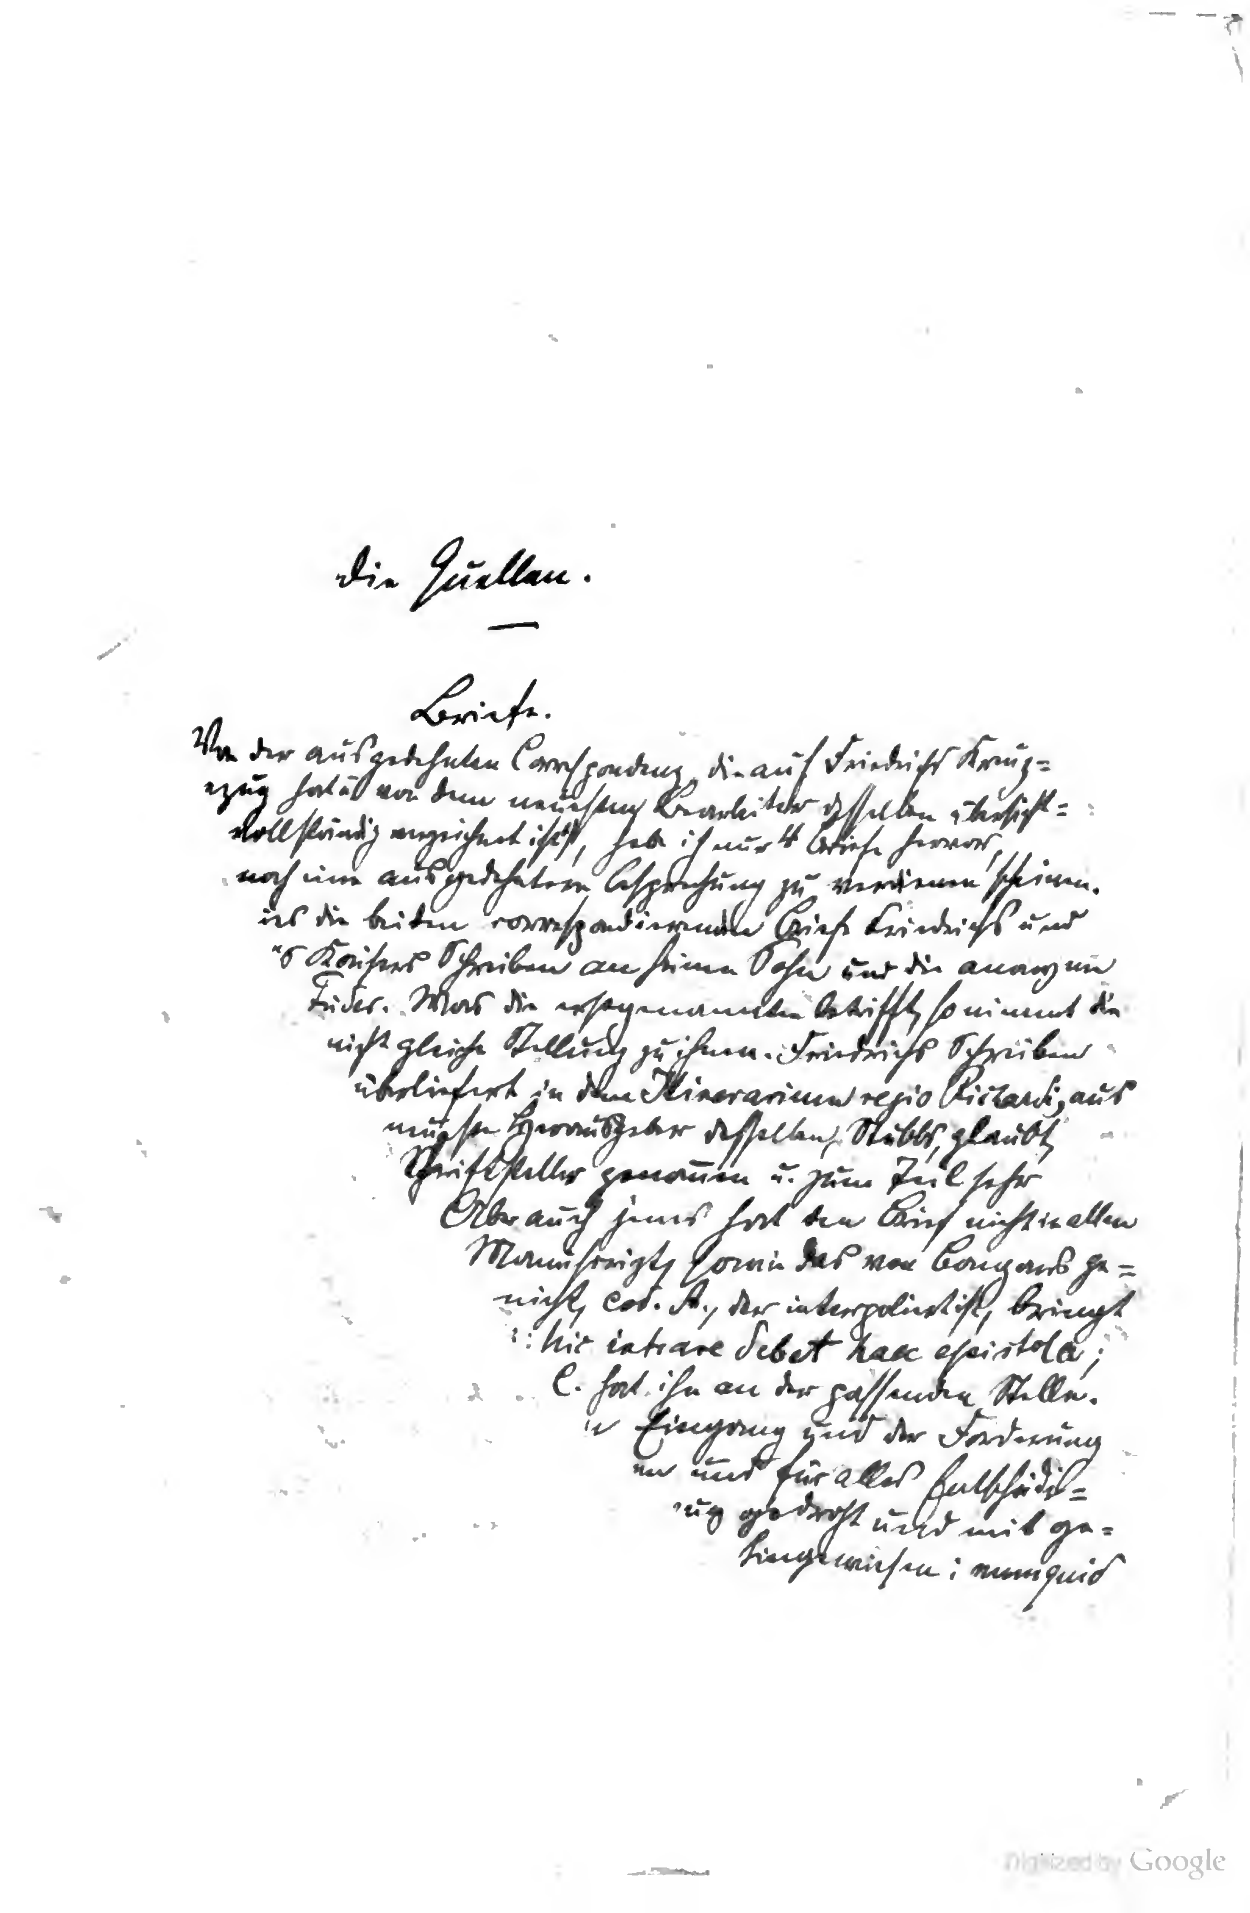 Die Quellen.
Briefe.
Von der ausgedehnten Correspondenz, die auf Friedrichs Kreuz=
zug hat u. von dem neuesten Bearbeiter desselben übersicht=
vollständig verzeichnet ist, hebe ich nur 4 Briefe hervor,
noch eine ausgedehntere Besprechung zu verdienen scheinen.
ies die beiden correspondierenden Briefe Friedrichs und
s Kaisers Schreiben an seinen Sohn und die anonyme
Fides. Was die erstgenannten betrifft, so nimmt die
nicht gleiche Stellung zu ihnen. Friedrichs Schreiben
überliefert in dem Itinerarium regis Ricardi, aus
neueste Herausgeber desselben, Stubbs, glaubt,
Schriftsteller genommen u. zum Teil sehr
Aber auch jenes hat den Brief nicht in allen
Manuscript, sowie das von Bongars ge=
nicht, cod. A., der interpoliert ist, bringt
: hic intrare debet haec epistola;
C. hat ihn an der passenden Stelle.
Eingang und der Forderung
en und für alles Entschädi=
ung gedroht und mit ge=
hingewiesen: numquid
Digitized by Google